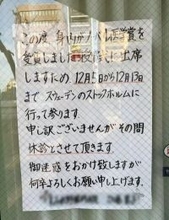 この度 身内がノーベル医学賞を
受賞しました 授賞式に出席
しますため、12月5日から12月13日
まで スウェーデンのストックホルムに
行って参ります。
申し訳ございませんが その間
休診とさせて頂きます。
御迷惑をおかけ致しますが
何卒よろしくお願い申し上げます。